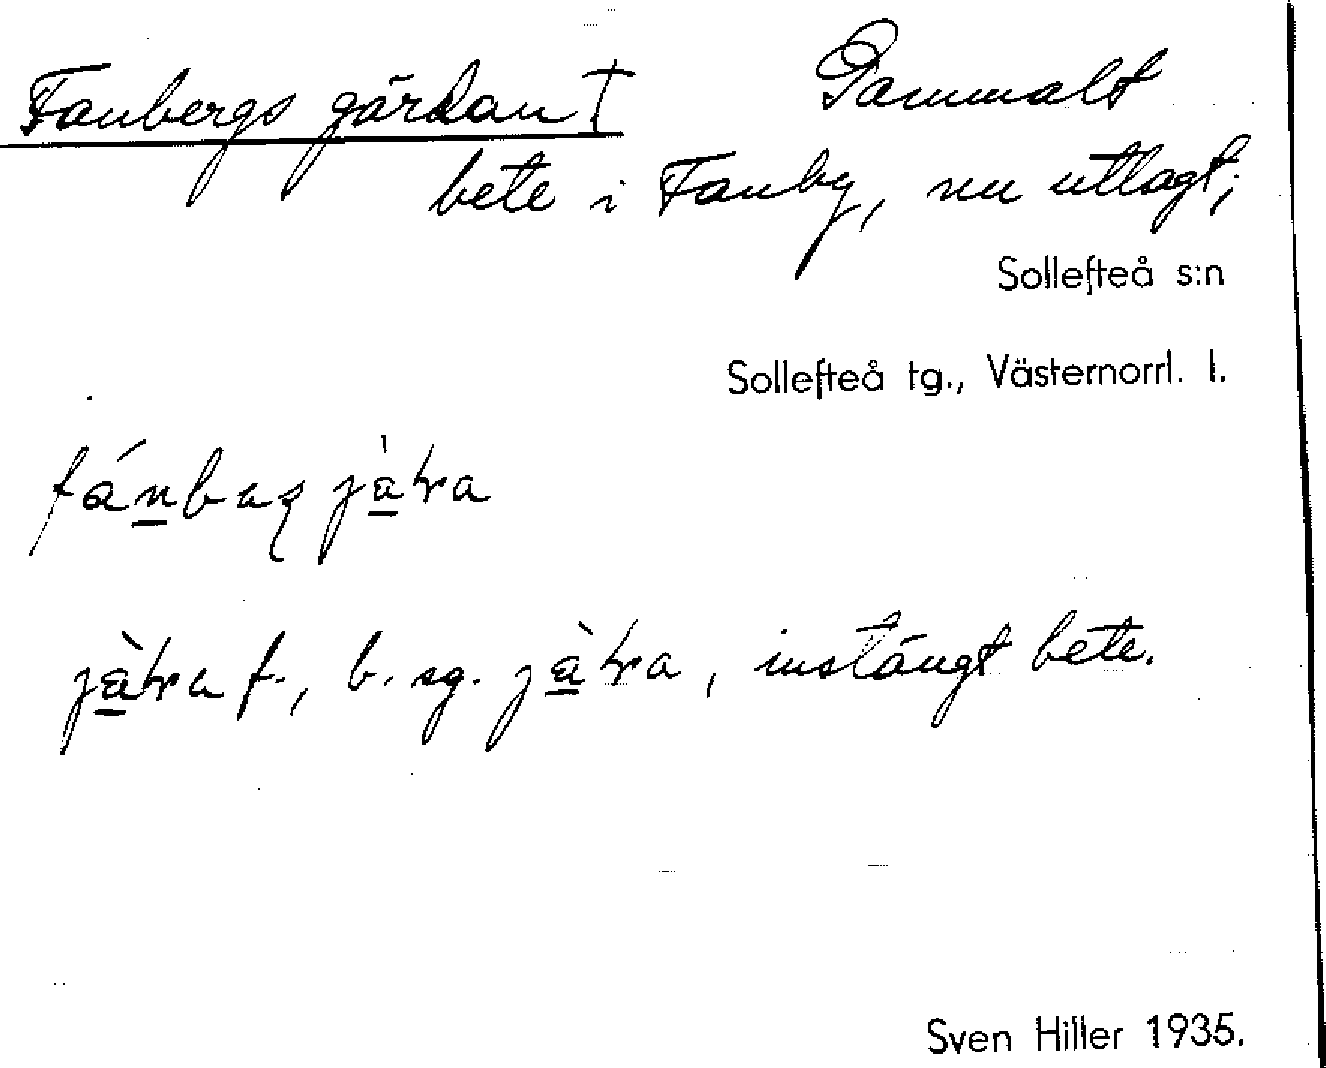 Fanbergs gärdan † Gammalt
bete i Fanby, nu utlagt;
Sollefteå s:n
Sollefteå tg., Västernorrl. l.
f., b. sg. , instängt bete.
Sven Hiller 1935.